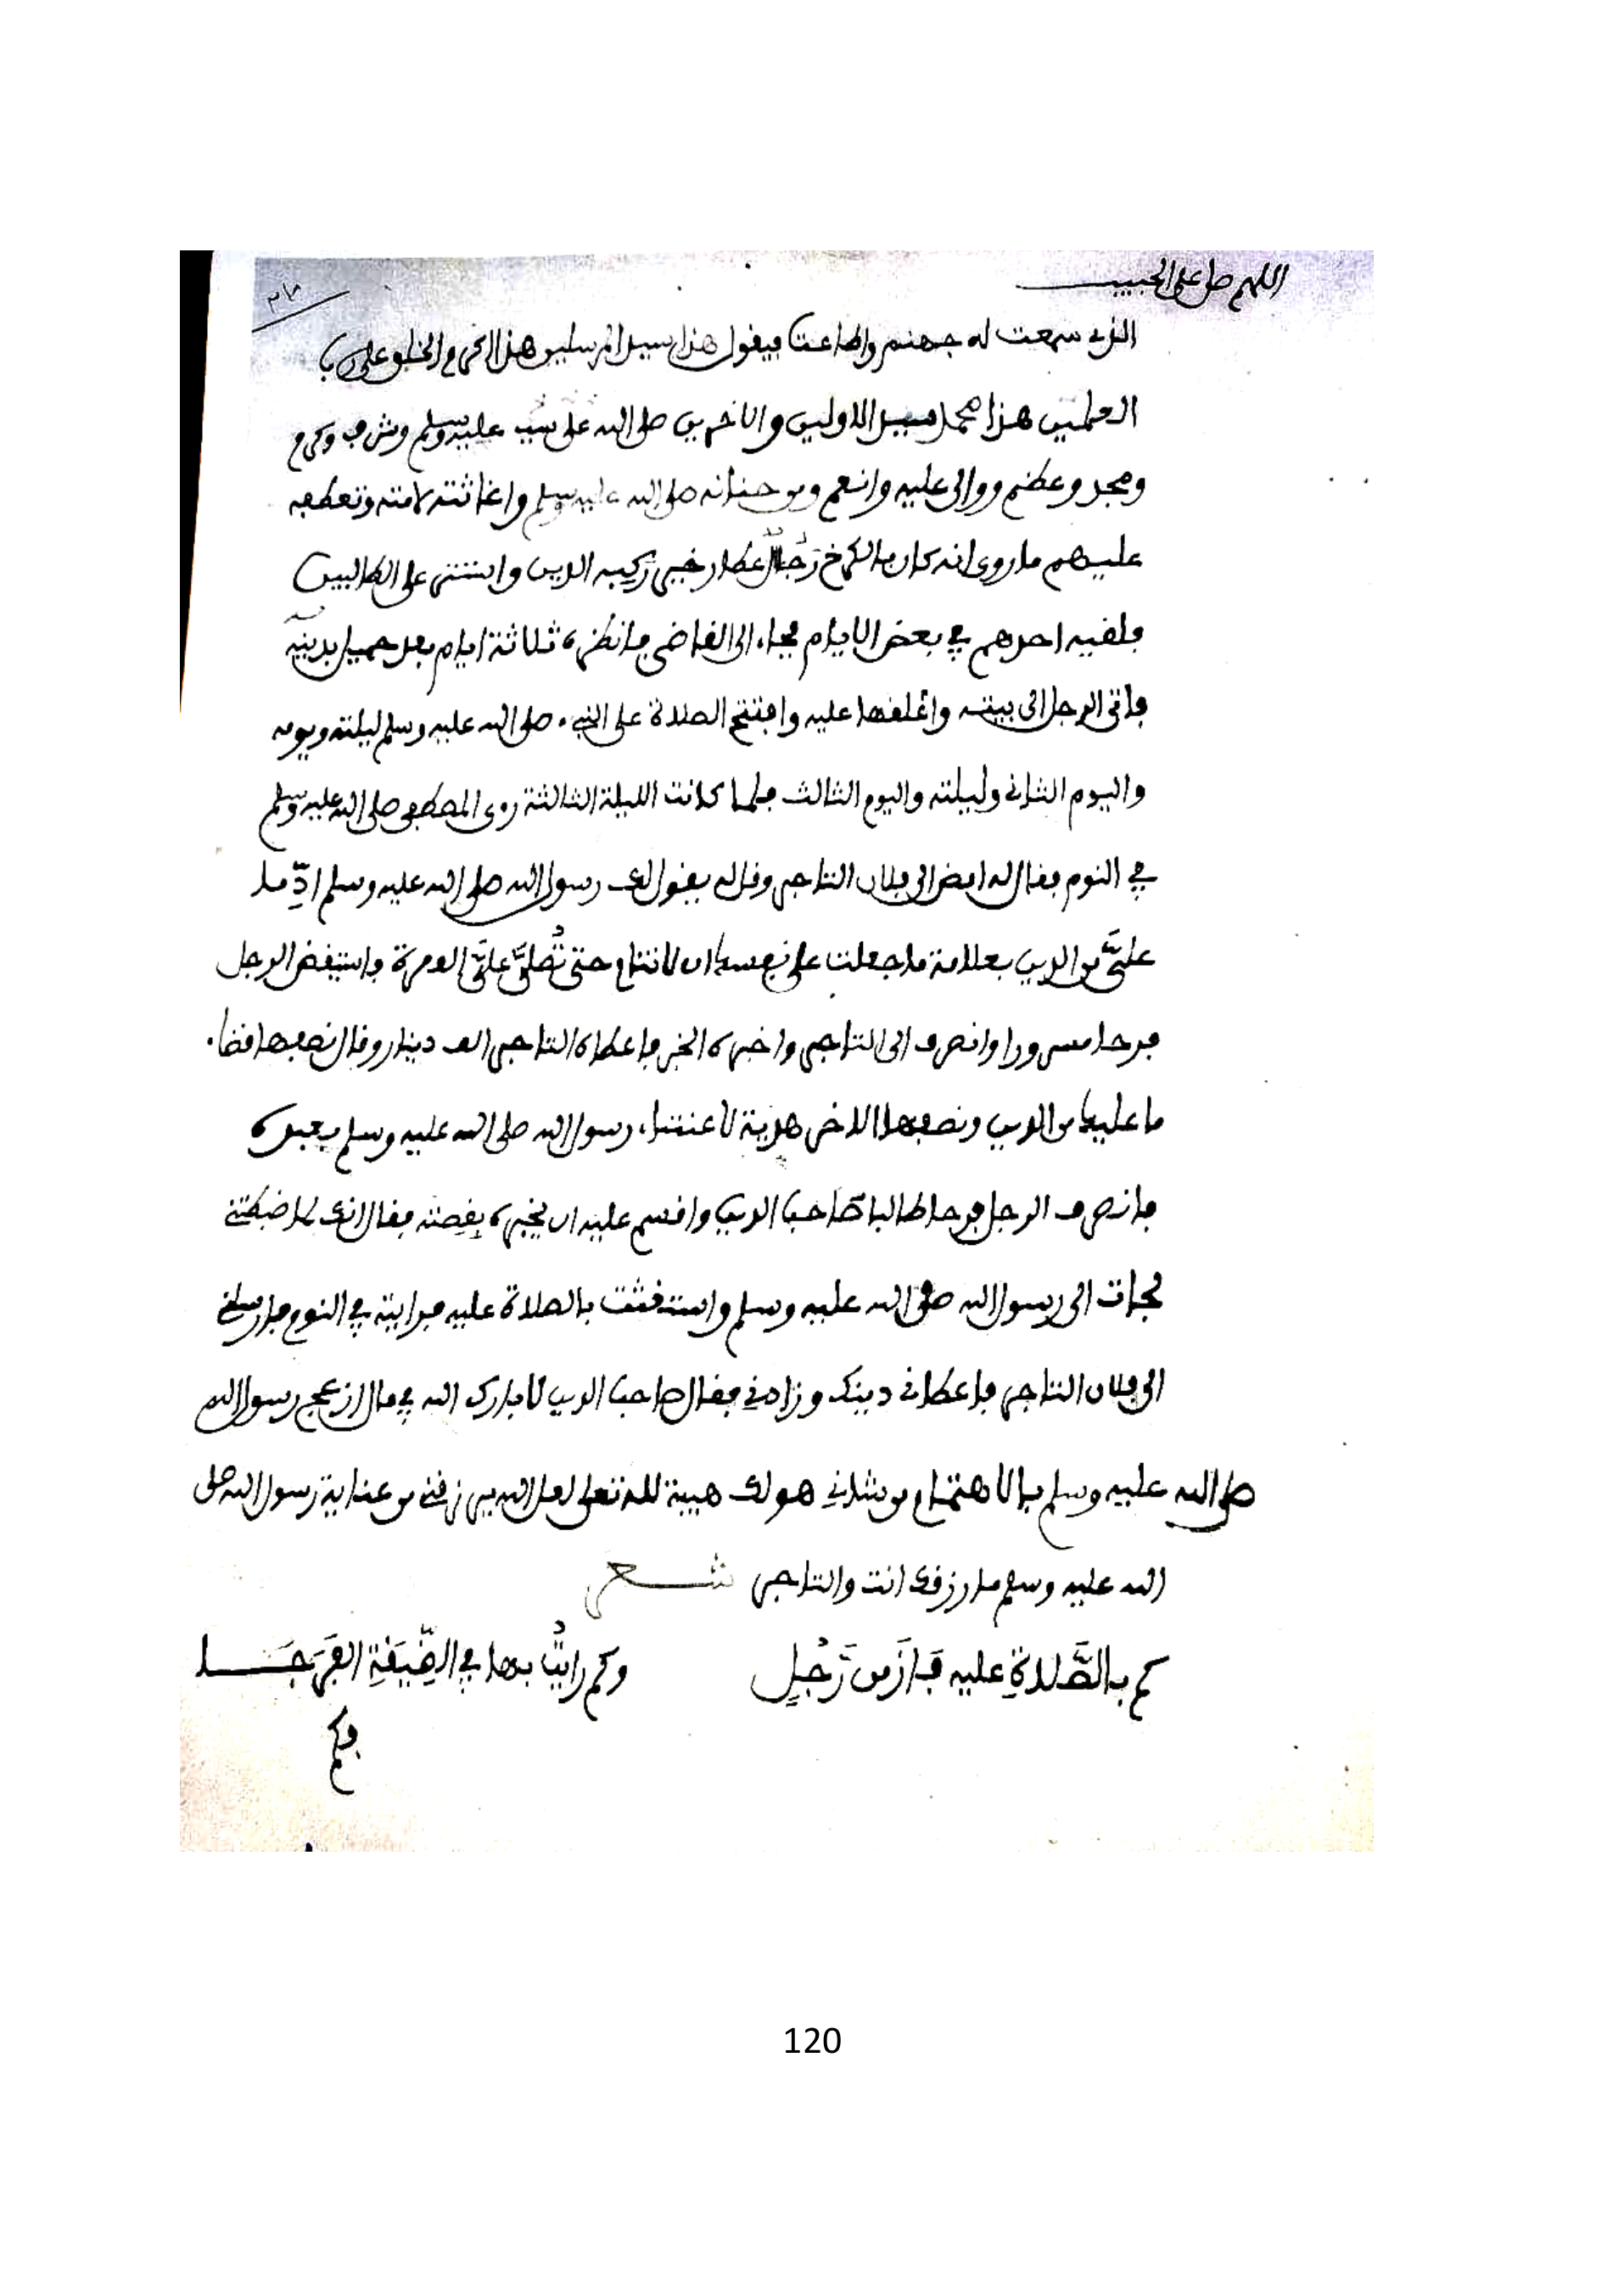 اللهم صل على الحبيب
٢١٨
الذي سمعت له جهنم واطاعت فيقول هذا سيد المرسلين هذا اكرم الخلق على رب
العلمين هذا محمد سيد الاولين والاخرين صلى الله عليه وسلم وشرف وكرم
ومجد وعظم ووالى عليه وانعم ومن حنانه صلى الله عليه وسلم واغاثته لامته وتعطفه
عليهم ما روى انه كان بالكرخ رَجُلٌ عطار خيى ركبه الدين واستتر على الطالبين
فلقيه احدهم في بعض الايام فجاء الى القاضي فانظره ثلاثة ايام بعد حميل بدينه
فاتى الرجل الى بيته واغلقها عليه وافتتح الصلاة على النبيء صلى الله عليه وسلم ليلته ويومه
واليوم الثاني وليلته واليوم الثالث فلما كانت الليلة الثالثة روى المصطفى صلى الله عليه وسلم
في النوم فقال له امض الى فلان التاجر وقل له يقول لك رسول الله صلى الله عليه وسلم ادِّ ما
عليَّ من الدين بعلامة ما جعلت على نفسك ان لا تنام حتى تُصلىَّ عليَّ الف مرة فاستيقض الرجل
فرحا مسرورا وانصرف الى التاجر واخبره الخبر فاعطاه التاجر الف دينار وقال نصفها قضاء
ما عليك من الدين ونصفها الاخر هدية لاعتناء رسول الله صلى الله عليه وسلم بعبده
فانصرف الرجل فرحا طالبا صاحب الدين واقسم عليه ان يخبره بقصته فقال انك لما ضيقتني
لجات الى رسول الله صلى الله عليه وسلم واستغثت بالصلاة عليه فرايته في النوم فارسلني
الى فلان التاجر فاعطاني دينك وزادني فقال صاحب الدين لا بارك الله في مال ازعج رسول الله
صلى الله عليه وسلم بالاهتمام من شاني هو لك هبة لله تعلى لعل الله يرزقني من عناية رسول الله صلى
الله عليه وسلم ما رزقك انت والتاجر شعر
كم بالصَّلاةِ عليه فَازَ من رَجُلٍ وكم رايتُ بها في الضِّيقَةِ الفَرَجَا
فكم
120